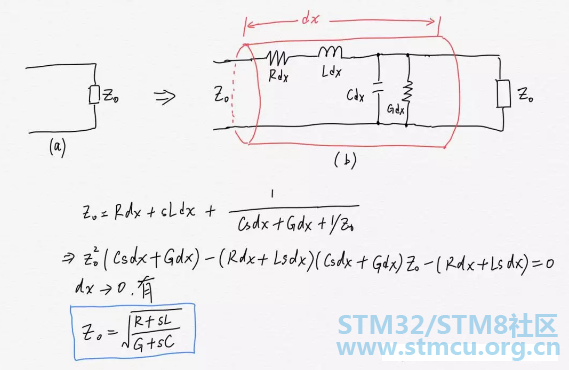 dx
Rdx Ldx
Z₀ ⇒ Z₀ Cdx Gdx Z₀
(a) (b)
Z₀ = Rdx + sLdx + 1/(Csdx + Gdx + 1/Z₀)
⇒ Z₀²(Csdx + Gdx) − (Rdx + Lsdx)(Csdx + Gdx) Z₀ − (Rdx + Lsdx) = 0
dx → 0. 有
Z₀ = √((R + sL)/(G + sC))
STM32/STM8社区
www.stmcu.org.cn